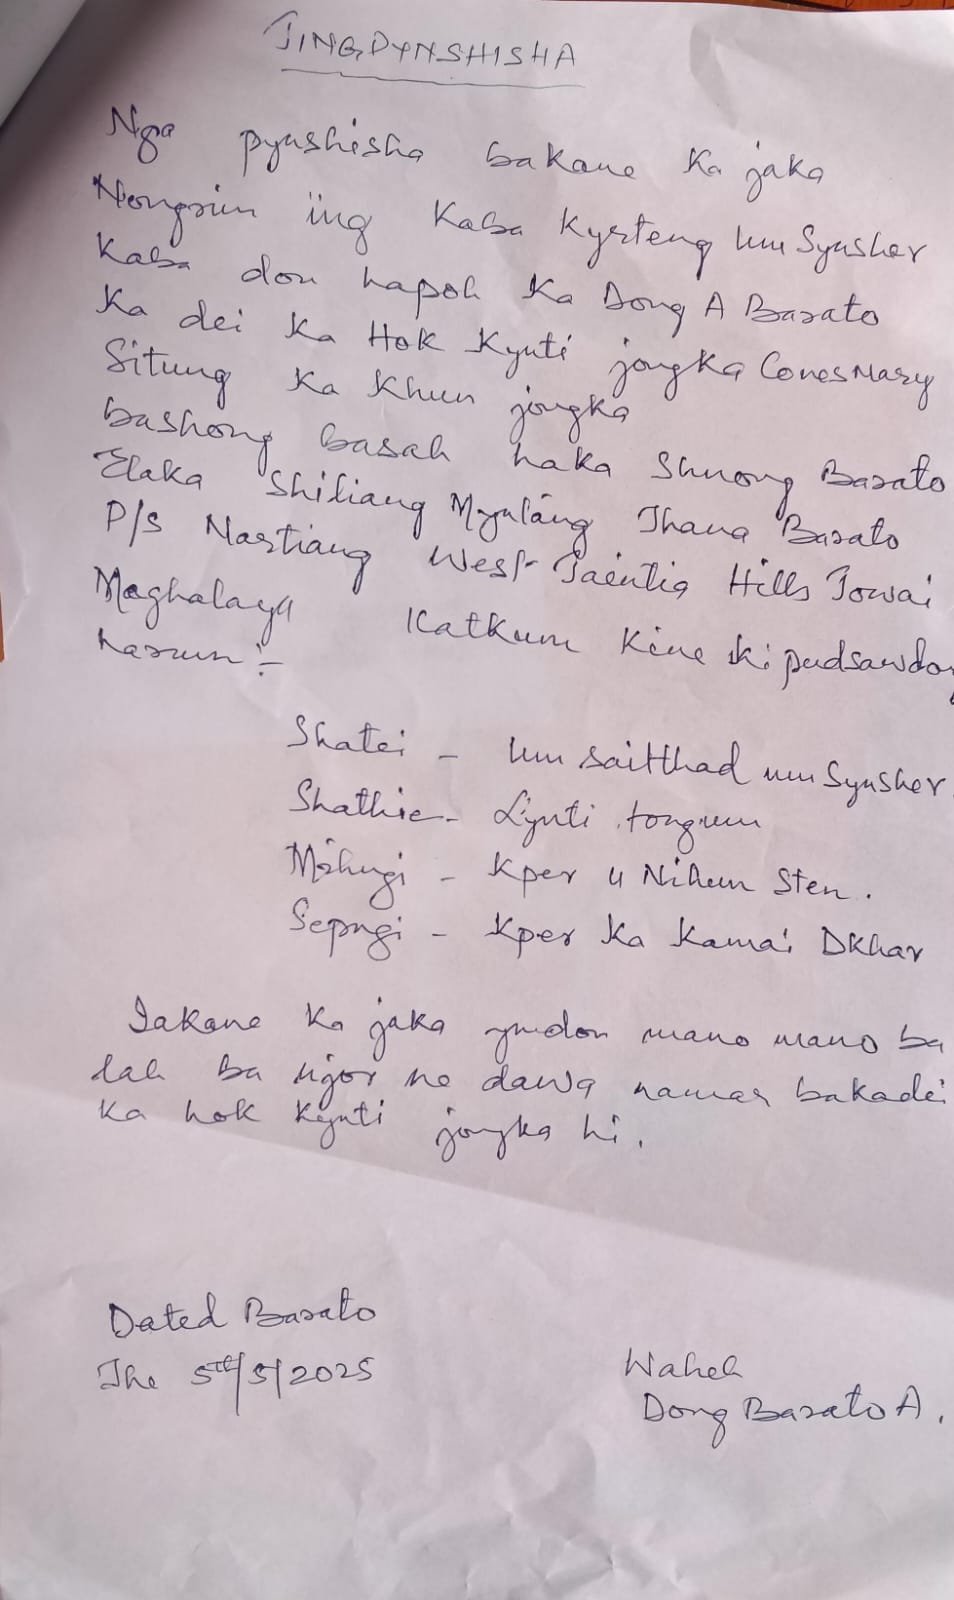 JINGPYNSHISHA
Nga pynshisha bakane Ka jaka
Nongrim ïing Kaba Kyrteng Um Synsher
Kaba don hapoh Ka Dong A Barato
Ka dei Ka Hok Kynti jongka ConesMary
Situng Ka Khun jongka
bashong basah haka Shnong Barato
Elaka Shiliang Mynlang Thana Barato
P/s Nartiang West Jaintia Hills Jowai
Meghalaya Katkum Kine ki pudsawdong
harum:-
Shatei - Um saitthad um Synsher
Shathie - Lynti tongum
Mihngi - Kper u Nihun Sten.
Sepngi - Kper Ka Kamai Dkhar
Iakane Ka jaka ymdon mano mano ba
lah ba ngor ne dawa namar bakadei
Ka hok Kynti jongka hi.
Dated Barato
The 5th/5/2025
Waheh
Dong Barato A.